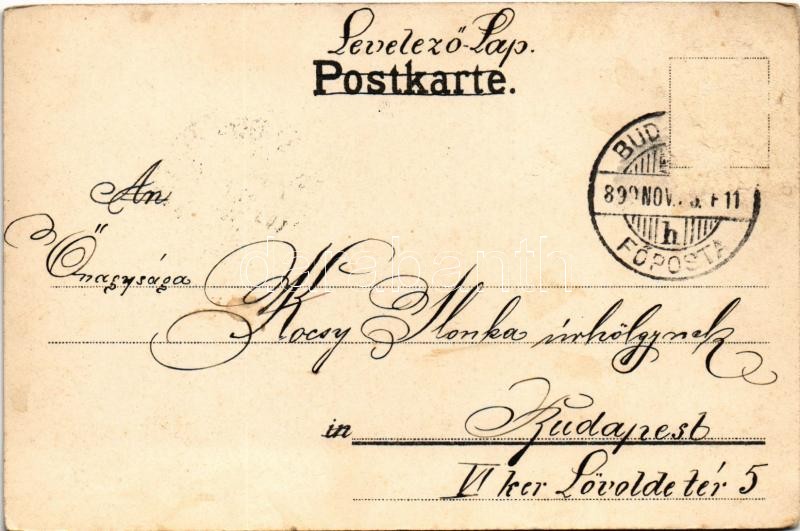 Levelező-Lap.
Postkarte.
BUD
899 NOV. F 11
h
FŐPOSTA
An
Őnagysága
Kocsy Ilonka úrhölgynek
in Budapest
VI ker Lövolde tér 5
darabanth